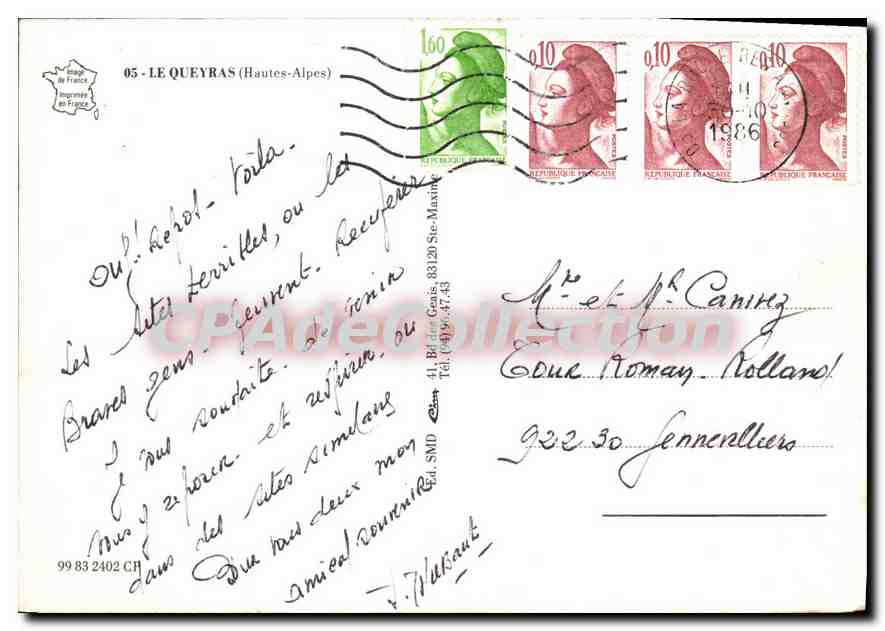 Image
de France
Imprimée
en France
05 - LE QUEYRAS (Hautes-Alpes)
1,60
POSTES
REPUBLIQUE FRANÇAISE
0,10
POSTES
REPUBLIQUE FRANÇAISE
0,10
POSTES
REPUBLIQUE FRANÇAISE
0,10
POSTES
REPUBLIQUE FRANÇAISE
1986
Ouf! Repos - Voila -
Les sites terribles, ou les
Braves gens - peuvent - Recupérer
Je vous souhaite - de venir
vous y reposer - et respirer - ou
dans des sites similaires
Que vous deux mon
amical souvenir
Ed. SMD
41, Bd des Geais, 83120 Ste-Maxime
Tél. (94) 96.47.43
Mre et Mr Canivez
Tour Romain - Rolland
92230 Gennevilliers
99 83 2402 CP
CPAdeCollection